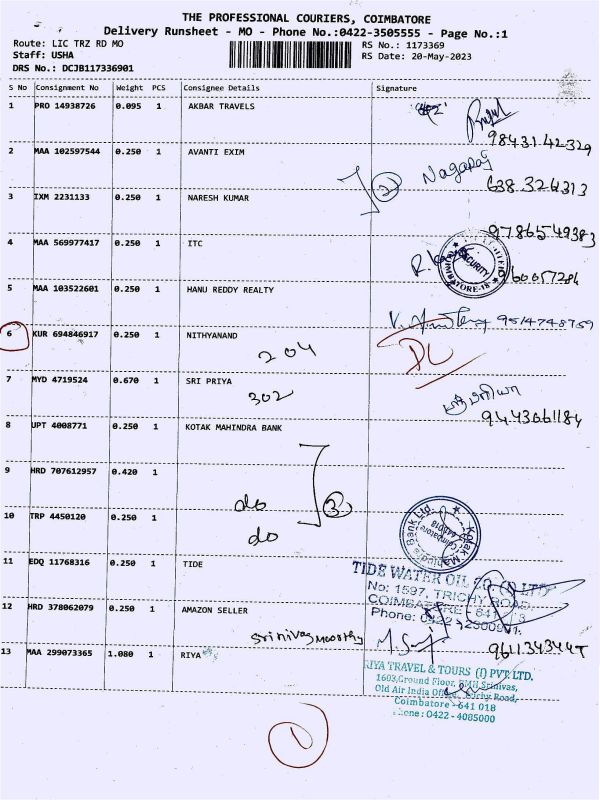 THE PROFESSIONAL COURIERS, COIMBATORE
Delivery Runsheet - MO - Phone No.:0422-3505555 - Page No.:1
Route: LIC TRZ RD MO RS No.: 1173369
Staff: USHA RS Date: 20-May-2023
DRS No.: DCJB117336901
S No Consignment No Weight PCS Consignee Details Signature
1 PRO 14938726 0.095 1 AKBAR TRAVELS
9843142329
2 MAA 102597544 0.250 1 AVANTI EXIM Nagaraj
2 638324313
3 IXM 2231133 0.250 1 NARESH KUMAR
9786549383
4 MAA 569977417 0.250 1 ITC
SECURITY
COIMBATORE-18
5 MAA 103522601 0.250 1 HANU REDDY REALTY
9514748759
6 KUR 694846917 0.250 1 NITHYANAND DL
204
7 MYD 4719524 0.670 1 SRI PRIYA
302 9443061184
8 UPT 4008771 0.250 1 KOTAK MAHINDRA BANK
9 HRD 707612957 0.420 1
do 3
10 TRP 4450120 0.250 1
do
Kotak Mahindra Bank Ltd.
Coimbatore
11 EDQ 11768316 0.250 1 TIDE
TIDE WATER OIL CO. (I) LTD
No: 1597, TRICHY ROAD,
COIMBATORE - 641
Phone: 0422
12 HRD 378062079 0.250 1 AMAZON SELLER
Srinivas Moorthy
13 MAA 299073365 1.080 1 RIYA
RIYA TRAVEL & TOURS (I) PVT. LTD.
1603,Ground Floor, Srinivas,
Old Air India Office, Trichy Road,
Coimbatore - 641 018
Phone : 0422 - 4085000
1